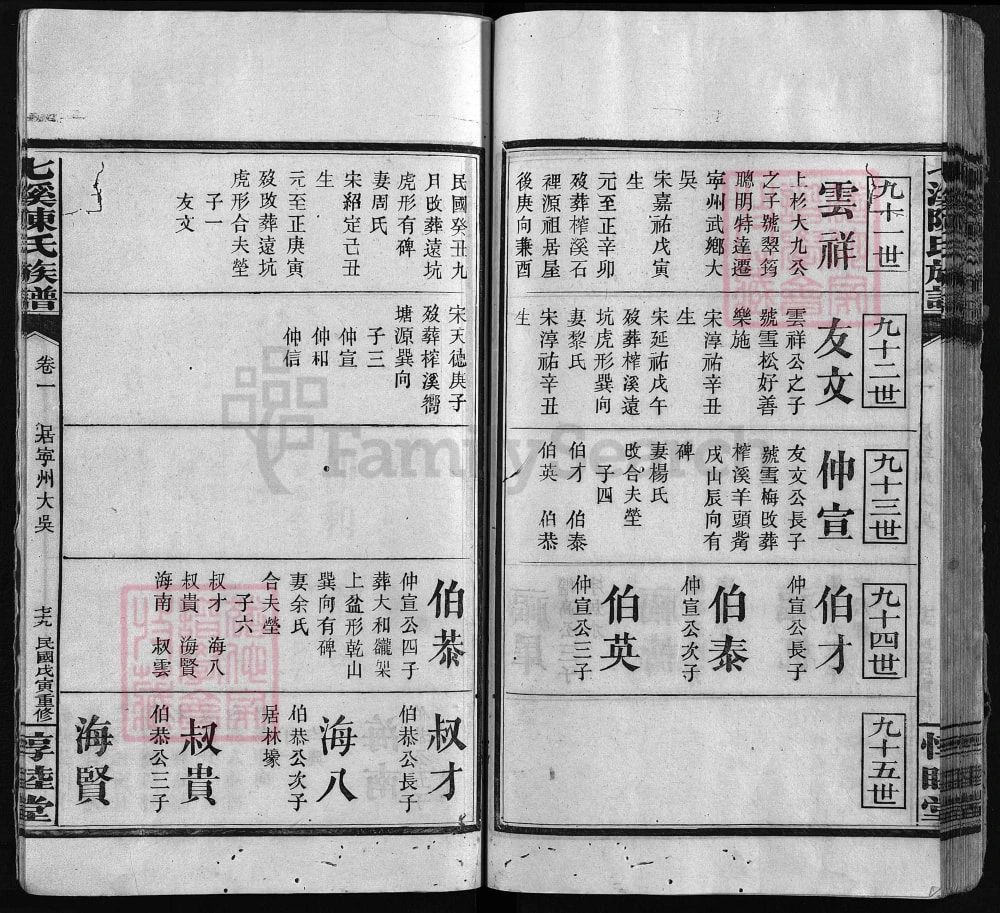 九十一世
雲祥
上杉大九公
之子號翠筠
聰明特達遷
寧州武鄉大
吳
宋嘉祐戊寅
生
元至正辛卯
歿葬榨溪石
裡源祖居屋
後庚向兼酉
民國癸丑九
月改葬遠坑
虎形有碑
妻周氏
宋紹定己丑
生
元至正庚寅
歿改葬遠坑
虎形合夫塋
子一
友文
九十二世
友文
雲祥公之子
號雪松好善
樂施
宋淳祐辛丑
生
宋延祐戊午
歿葬榨溪遠
坑虎形巽向
妻黎氏
宋淳祐辛丑
生
宋天德庚子
歿葬榨溪嚮
塘源巽向
子三
仲宣
仲和
仲信
九十三世
仲宣
友文公長子
號雪梅改葬
榨溪羊頭觜
戌山辰向有
碑
妻楊氏
改合夫塋
子四
伯才 伯泰
伯英 伯恭
九十四世
伯才
仲宣公長子
伯泰
仲宣公次子
伯英
仲宣公三子
伯恭
仲宣公四子
葬大和龍
上盆形乾山
巽向有碑
妻余氏
合夫塋
子六
叔才 海八
叔貴 海賢
海南 叔雲
九十五世
叔才
伯恭公長子
海八
伯恭公次子
居林壕
叔貴
伯恭公三子
海賢
七溪陳氏族譜
卷一
居寧州大吳
民國戊寅重修
惇睦堂
FamilySearch